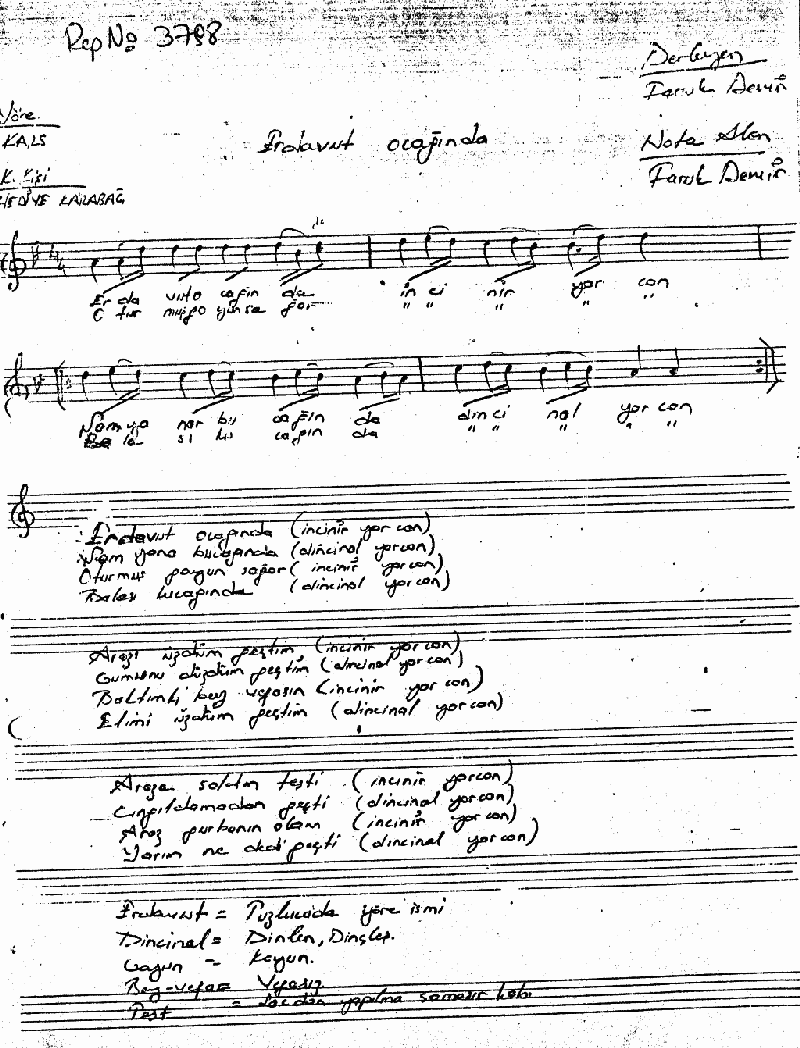 Rep No 3798
Derleyen
Faruk Demir
Yöre
KARS
Erdavut ocağında
Nota Alan
Faruk Demir
K. Kişi
Er da vuto cağın da in ci nir yar can
O tur muş " " " " "
Nam ya nar bu cağın da din ci nal yar can
Ba la sı cağın da " " " " "
Erdavut ocağında (incinir yar can)
Nam yanar bucağında (dincinal yarcan)
Oturmuş goyun sağar (incinir yar can)
Balası bucağında (dincinal yarcan)
Arazı üzdüm geçtim (incinir yar can)
düzdüm geçtim (dincinal yar can)
Baktımki bey vefasın (incinir yar can)
Elimi üzdüm geçtim (dincinal yar can)
Araza saldım teşti (incinir yarcan)
geçti (dincinal yarcan)
Araz gurbanın olam (incinir yar can)
Yarim ne dedi geçti (dincinal yar can)
Erdavut = Tuzlucada yöre ismi
Dincinal = Dinlen, Dinçleş.
Goyun = Koyun.
Bey-vefa = Vefasız
Teşt = Sacdan yapılma çamaşır kabı